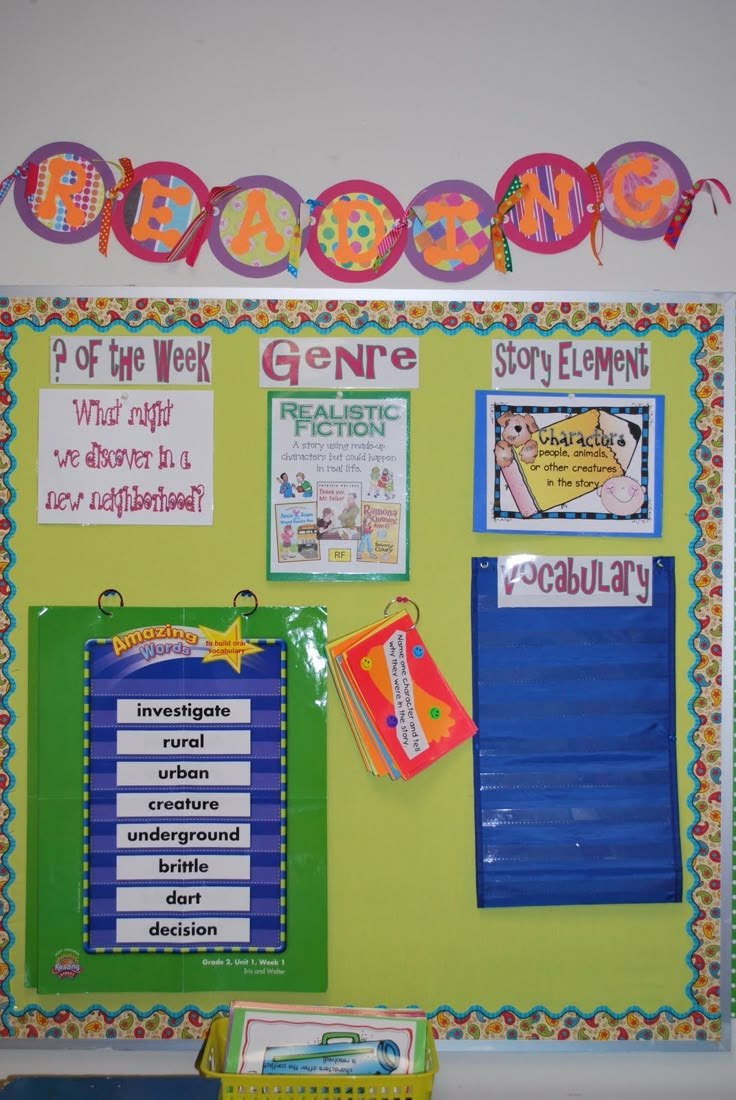 READING
? OF THE WEEK
What might
we discover in a
new neighborhood?
GENRE
REALISTIC
FICTION
A story using made-up
characters but could happen
in real life.
Thank you
Mr. Falker
Ramona
RF
STORY ELEMENT
Characters
people, animals,
or other creatures
in the story
VOCABULARY
Amazing
Words
to build oral
vocabulary
investigate
rural
urban
creature
underground
brittle
dart
decision
Grade 2, Unit 1, Week 1
Iris and Walter
Reading
Name one character and tell
why they were in the story.
characters after the conflict
is resolved?